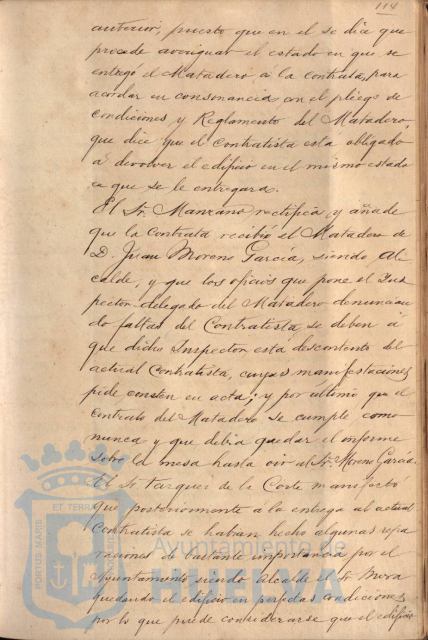 114
anterior, puesto que en él se dice que
procede averiguar el estado en que se
entregó el Matadero á la contrata, para
acordar en consonancia con el pliego de
condiciones y Reglamento del Matadero,
que dice que el Contratista está obligado
á devolver el edificio en el mismo estado
en que se le entregara.
El Sr. Manzano rectifica y añade
que la Contrata recibió el Matadero de
D. Juan Moreno García, siendo Al-
calde, y que los oficios que pone el Ins-
pector delegado del Matadero denuncian-
do faltas del Contratista, se deben á
que dicho Inspector está descontento del
actual Contratista, cuyas manifestaciones
pide consten en acta; y por último que el
Contrato del Matadero se cumple como
nunca y que debia quedar el informe
sobre la mesa hasta oir al Sr. Moreno García.
El Sr. Varques de la Corte manifestó
que posteriormente á la entrega al actual
Contratista se habian hecho algunas repa-
raciones de bastante importancia por el
Ayuntamiento siendo alcalde el Sr. Mora
quedando el edificio en perfectas condiciones,
por lo que puede considerarse que el edificio
PORTUS MARIS ET TERRÆ
Ayuntamiento de
HUELVA